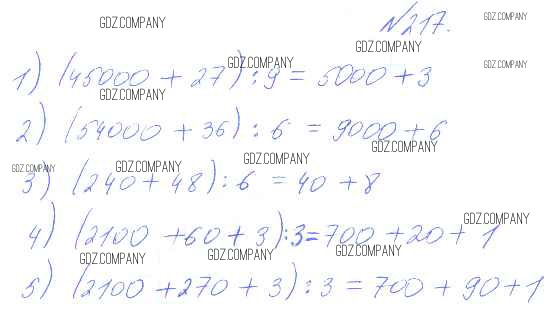 №217.
1) (45000 + 27) : 9 = 5000 + 3
2) (54000 + 36) : 6 = 9000 + 6
3) (240 + 48) : 6 = 40 + 8
4) (2100 + 60 + 3) : 3 = 700 + 20 + 1
5) (2100 + 270 + 3) : 3 = 700 + 90 + 1
GDZ.COMPANY
GDZ.COMPANY
GDZ.COMPANY
GDZ.COMPANY
GDZ.COMPANY
GDZ.COMPANY
GDZ.COMPANY
GDZ.COMPANY
GDZ.COMPANY
GDZ.COMPANY
GDZ.COMPANY
GDZ.COMPANY
GDZ.COMPANY
GDZ.COMPANY